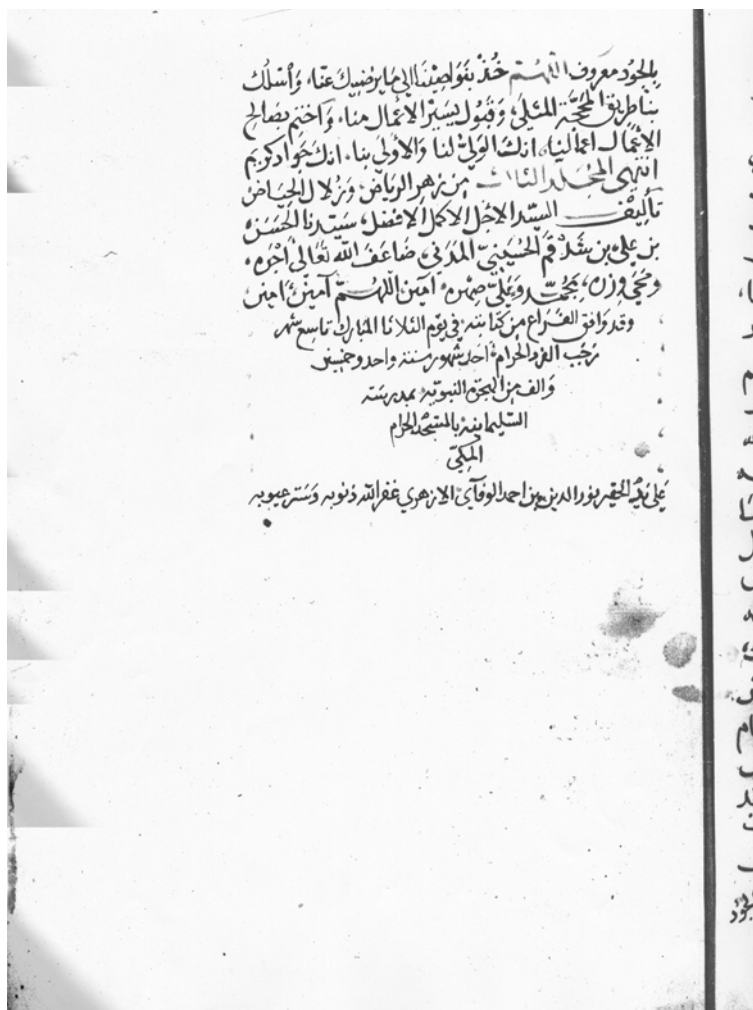 بالجود معروف اللهم خذ بنواصينا الى ما يرضيك عنا، واسلك
بنا طريق المحجة المثلى، وقبول يسير الاعمال منا، واختم بصالح
الاعمال اعمالنا، انك الولي لنا والاولى بنا، انك جواد كريم
انتهى المجلد الثالث من زهر الرياض، وزلال الحياض
تأليف السيد الاجل الاكمل الافضل، سيدنا الحسن،
بن علي بن شدقم الحسيني المدني، ضاعف الله تعالى اجره،
ومحي وزره، بمحمد وعلي صهره، امين اللهم آمين ءامين
وقد وافق الفراغ من كتابته في يوم الثلاثا المبارك تاسع شهر
رجب الفرد الحرام احد شهور سنة واحد وخمسين
والف من الهجرة النبوية بمدرسة
السليمانية بالمسجد الحرام
المكي
على يد الحقير نور الدين بن احمد الوفآي الازهري غفر الله ذنوبه وستر عيوبه